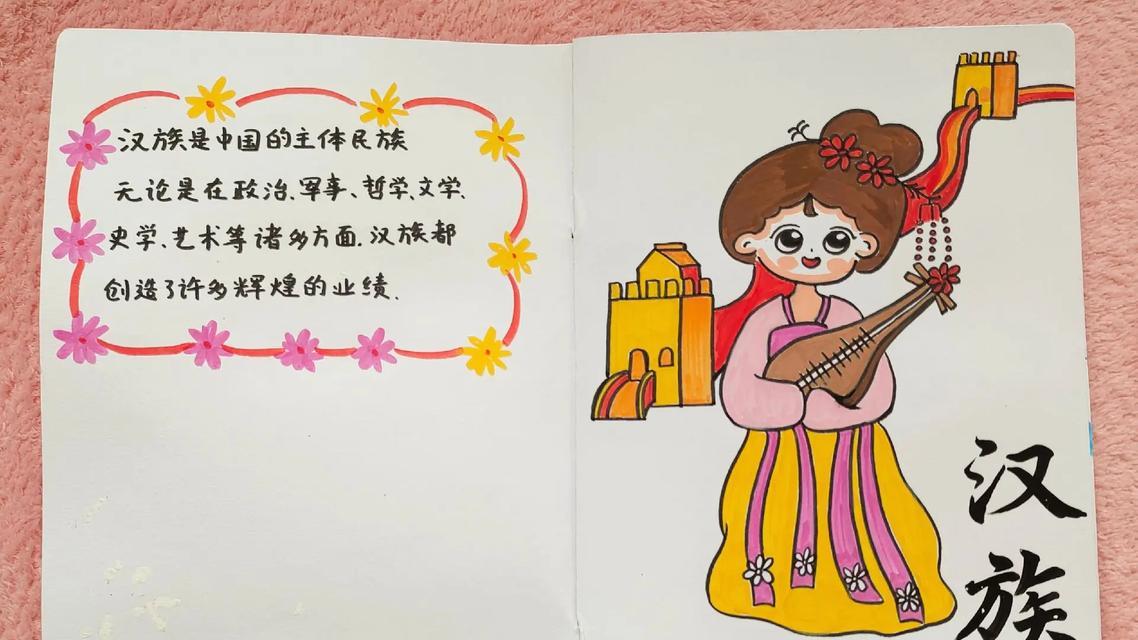 汉族是中国的主体民族
无论是在政治、军事、哲学、文学、
史学、艺术等诸多方面.汉族都
创造了许多辉煌的业绩.
汉
族